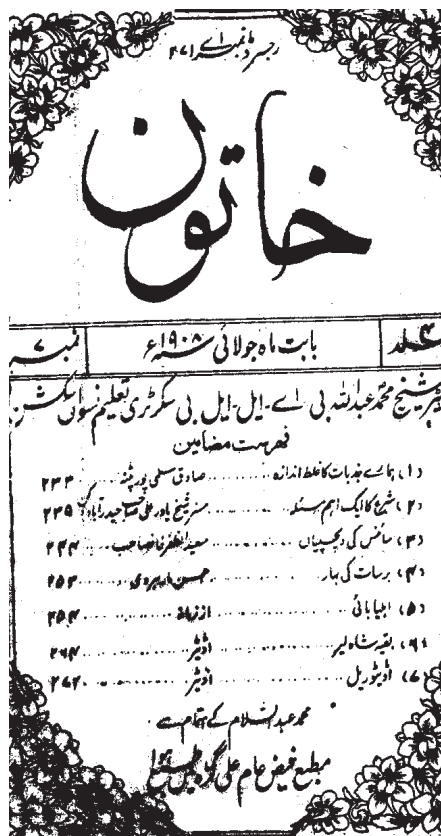 رجسٹرڈ نمبر اے ۴۷۱
خاتون
جلد ۴
بابت ماہ جولائی سنہ ۱۹۰۸ء
نمبر ۷
شیخ محمد عبداللہ بی۔اے۔ایل۔ایل۔بی سکرٹری تعلیم نسواں سکشن
فہرست مضامین
(۱) ہمارے جذبات کا غلط اندازہ .......... صادق سلمی پور پٹنہ .. ۲۳۳
(۲) شرع کا ایک اہم مسئلہ .......... مسز شیخ یاور علی صاحب حیدرآباد ۲۳۹
(۳) سائنس کی دلچسپیاں .......... سعید الظفر خانصاحب .... ۲۴۴
(۴) برسات کی بہار .......... حسن مارہروی .... ۲۵۳
(۵) اہلیا بائی .......... از زمانہ .......... ۲۵۴
(۶) بقیہ شاہ لیر .......... اڈیٹر .......... ۲۶۴
(۷) اڈیٹوریل .......... اڈیٹر .......... ۲۷۲
محمد عبدالسلام کے اہتمام سے
مطبع فیض عام علی گڑھ میں طبع ہوا